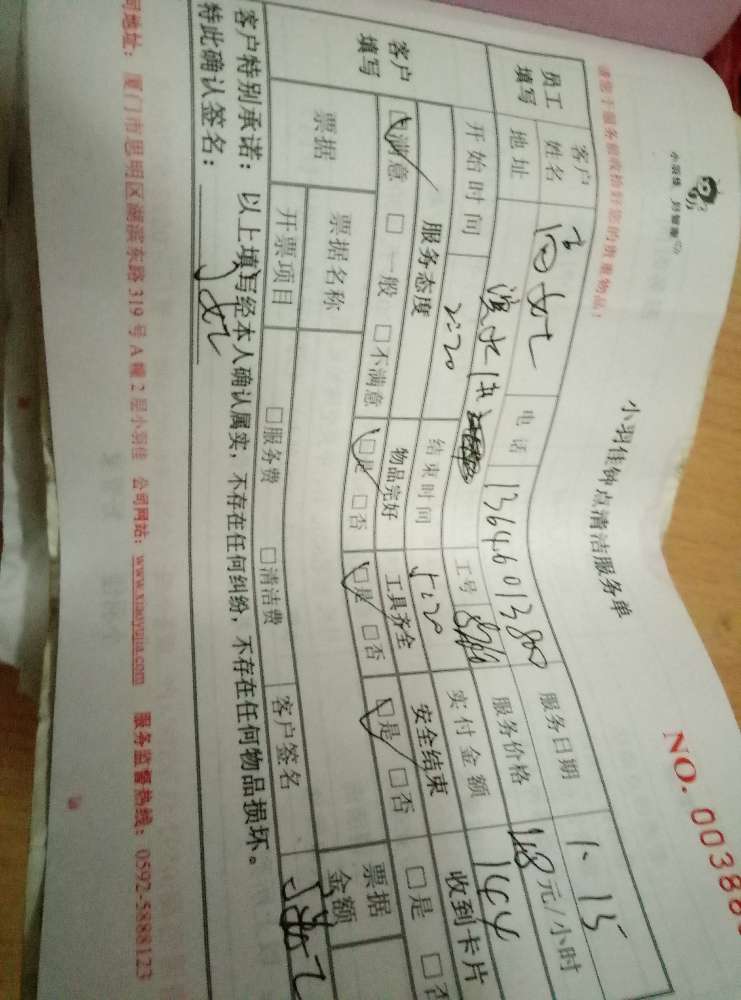 小羽佳 好管家
小羽佳钟点清洁服务单
NO. 00388
请您于服务前收拾好您的贵重物品！
员工填写 客户姓名 高女士 电话 13646013800 服务日期 1.15
地址 工号 服务价格 48元/小时
开始时间 2:20 结束时间 5:20 实付金额 144
客户填写 服务态度 物品完好 工具齐全 安全结束 收到卡片
☑满意 □一般 □不满意 ☑是 □否 ☑是 □否 ☑是 □否 □是 □否
票据 票据名称 票据金额
开票项目 □服务费 □清洁费 客户签名
客户特别承诺：以上填写经本人确认属实，不存在任何纠纷，不存在任何物品损坏。
特此确认签名：
司地址：厦门市思明区湖滨东路319号A幢2层小羽佳 公司网站：www.xiaoyujia.com 服务监督热线：0592-5888123